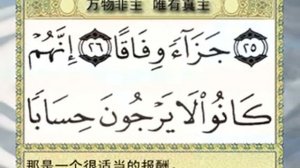 万物非主 唯有真主
﴿٢٥﴾ جَزَآءً وِفَاقًا ﴿٢٦﴾ إِنَّهُمْ
كَانُوا۟ لَا يَرْجُونَ حِسَابًا
那是一个很适当的报酬。